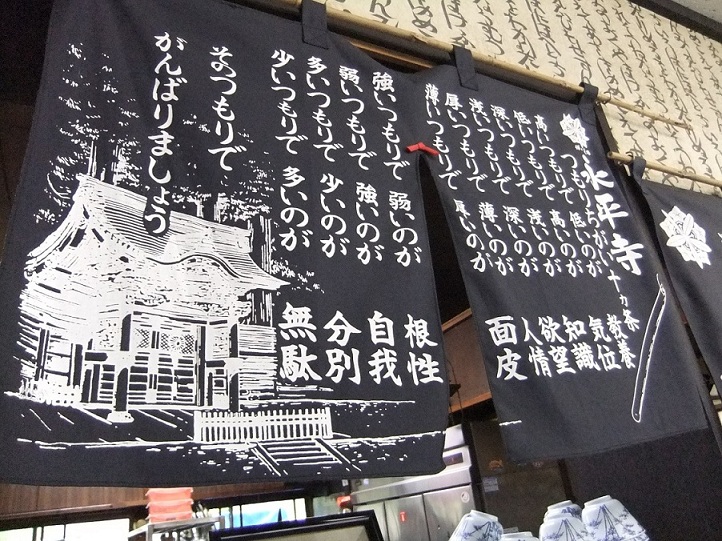 永平寺
つもりちがい十ヵ条
高いつもりで 低いのが 教養
低いつもりで 高いのが 気位
深いつもりで 浅いのが 知識
浅いつもりで 深いのが 欲望
厚いつもりで 薄いのが 人情
薄いつもりで 厚いのが 面皮
強いつもりで 弱いのが 根性
弱いつもりで 強いのが 自我
多いつもりで 少いのが 分別
少いつもりで 多いのが 無駄
そのつもりで
がんばりましょう